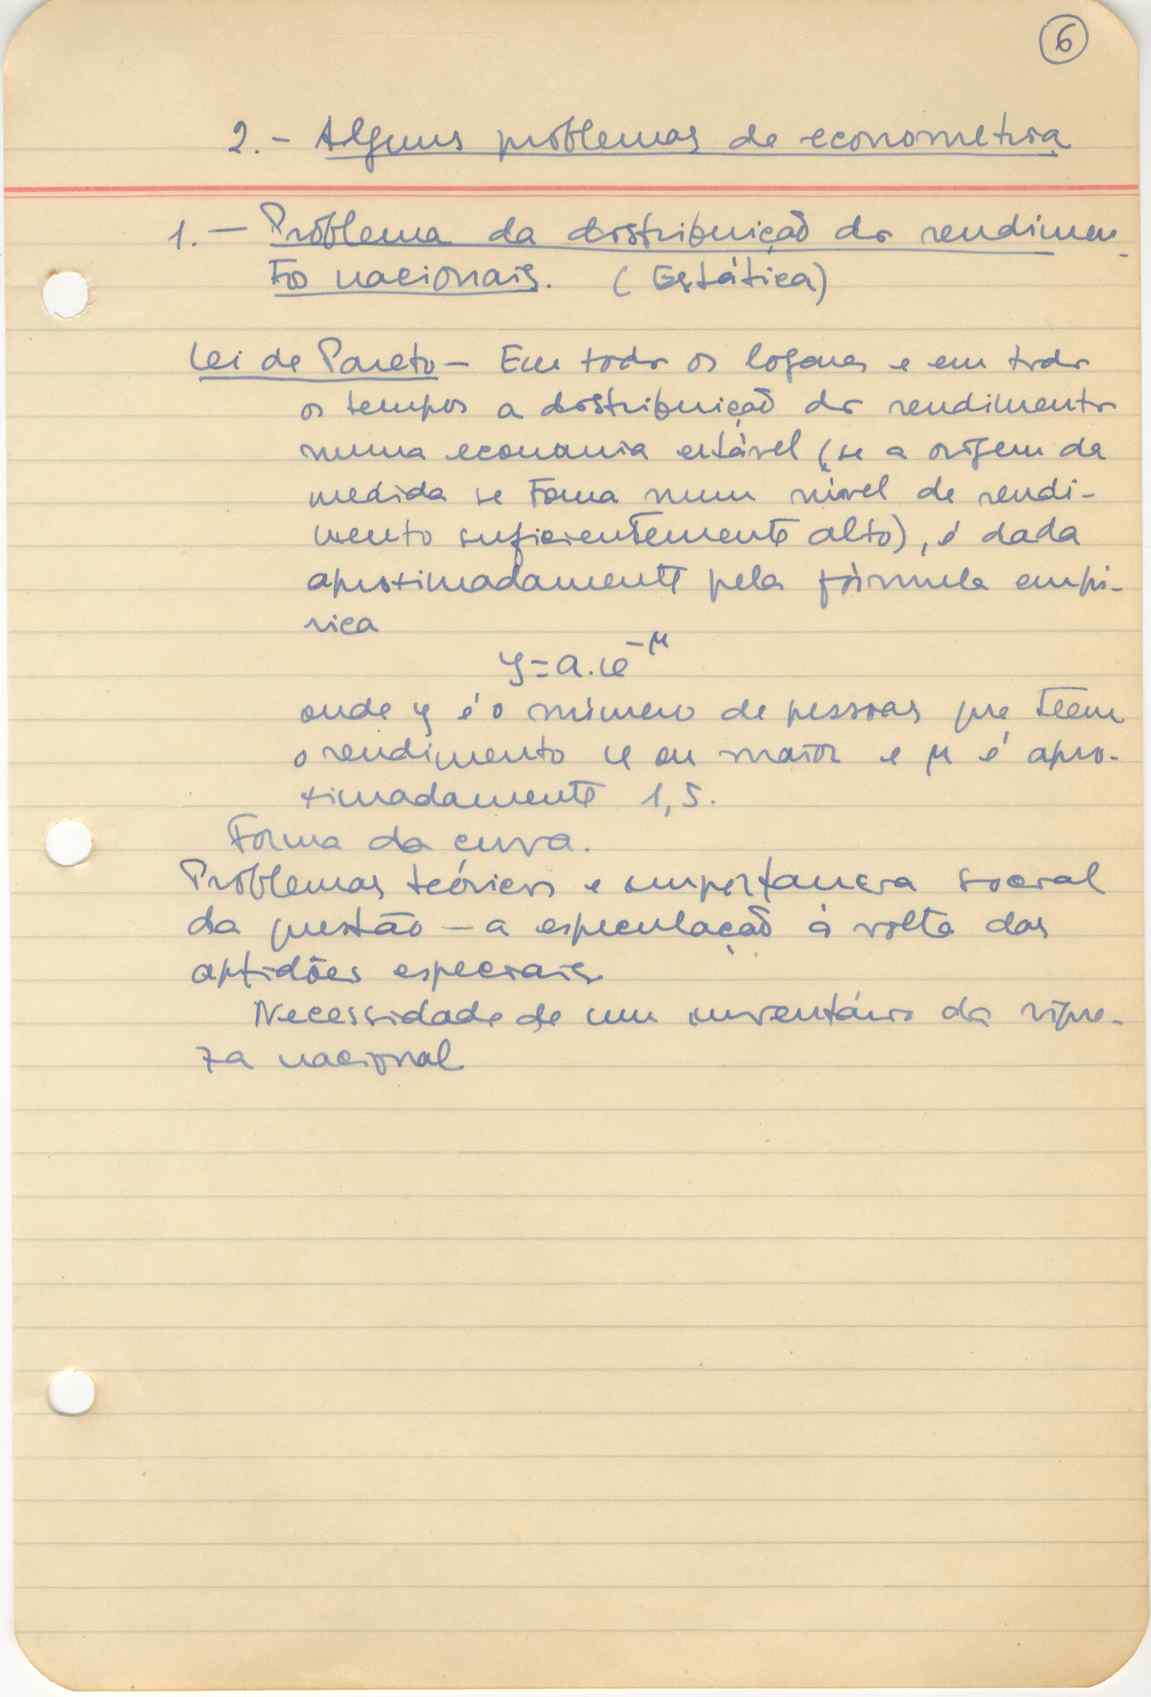 6
2.- Alguns problemas de econometria
1.— Problema da distribuição do rendimen-
to nacionais. (Estática)
Lei de Pareto - Em todo os logares e em todo
os tempos a distribuição do rendimento
numa economia estável (se a origem da
medida se toma num nível de rendi-
mento suficientemente alto), é dada
aproximadamente pela fórmula empí-
rica
y=a.x^-μ
onde y é o número de pessoas que teem
o rendimento x ou maior e μ é apro-
ximadamente 1,5.
Forma da curva.
Problemas teóricos e importancia social
da questão - a especulação à volta das
aptidões especiais
Necessidade de um inventário da rique-
za nacional